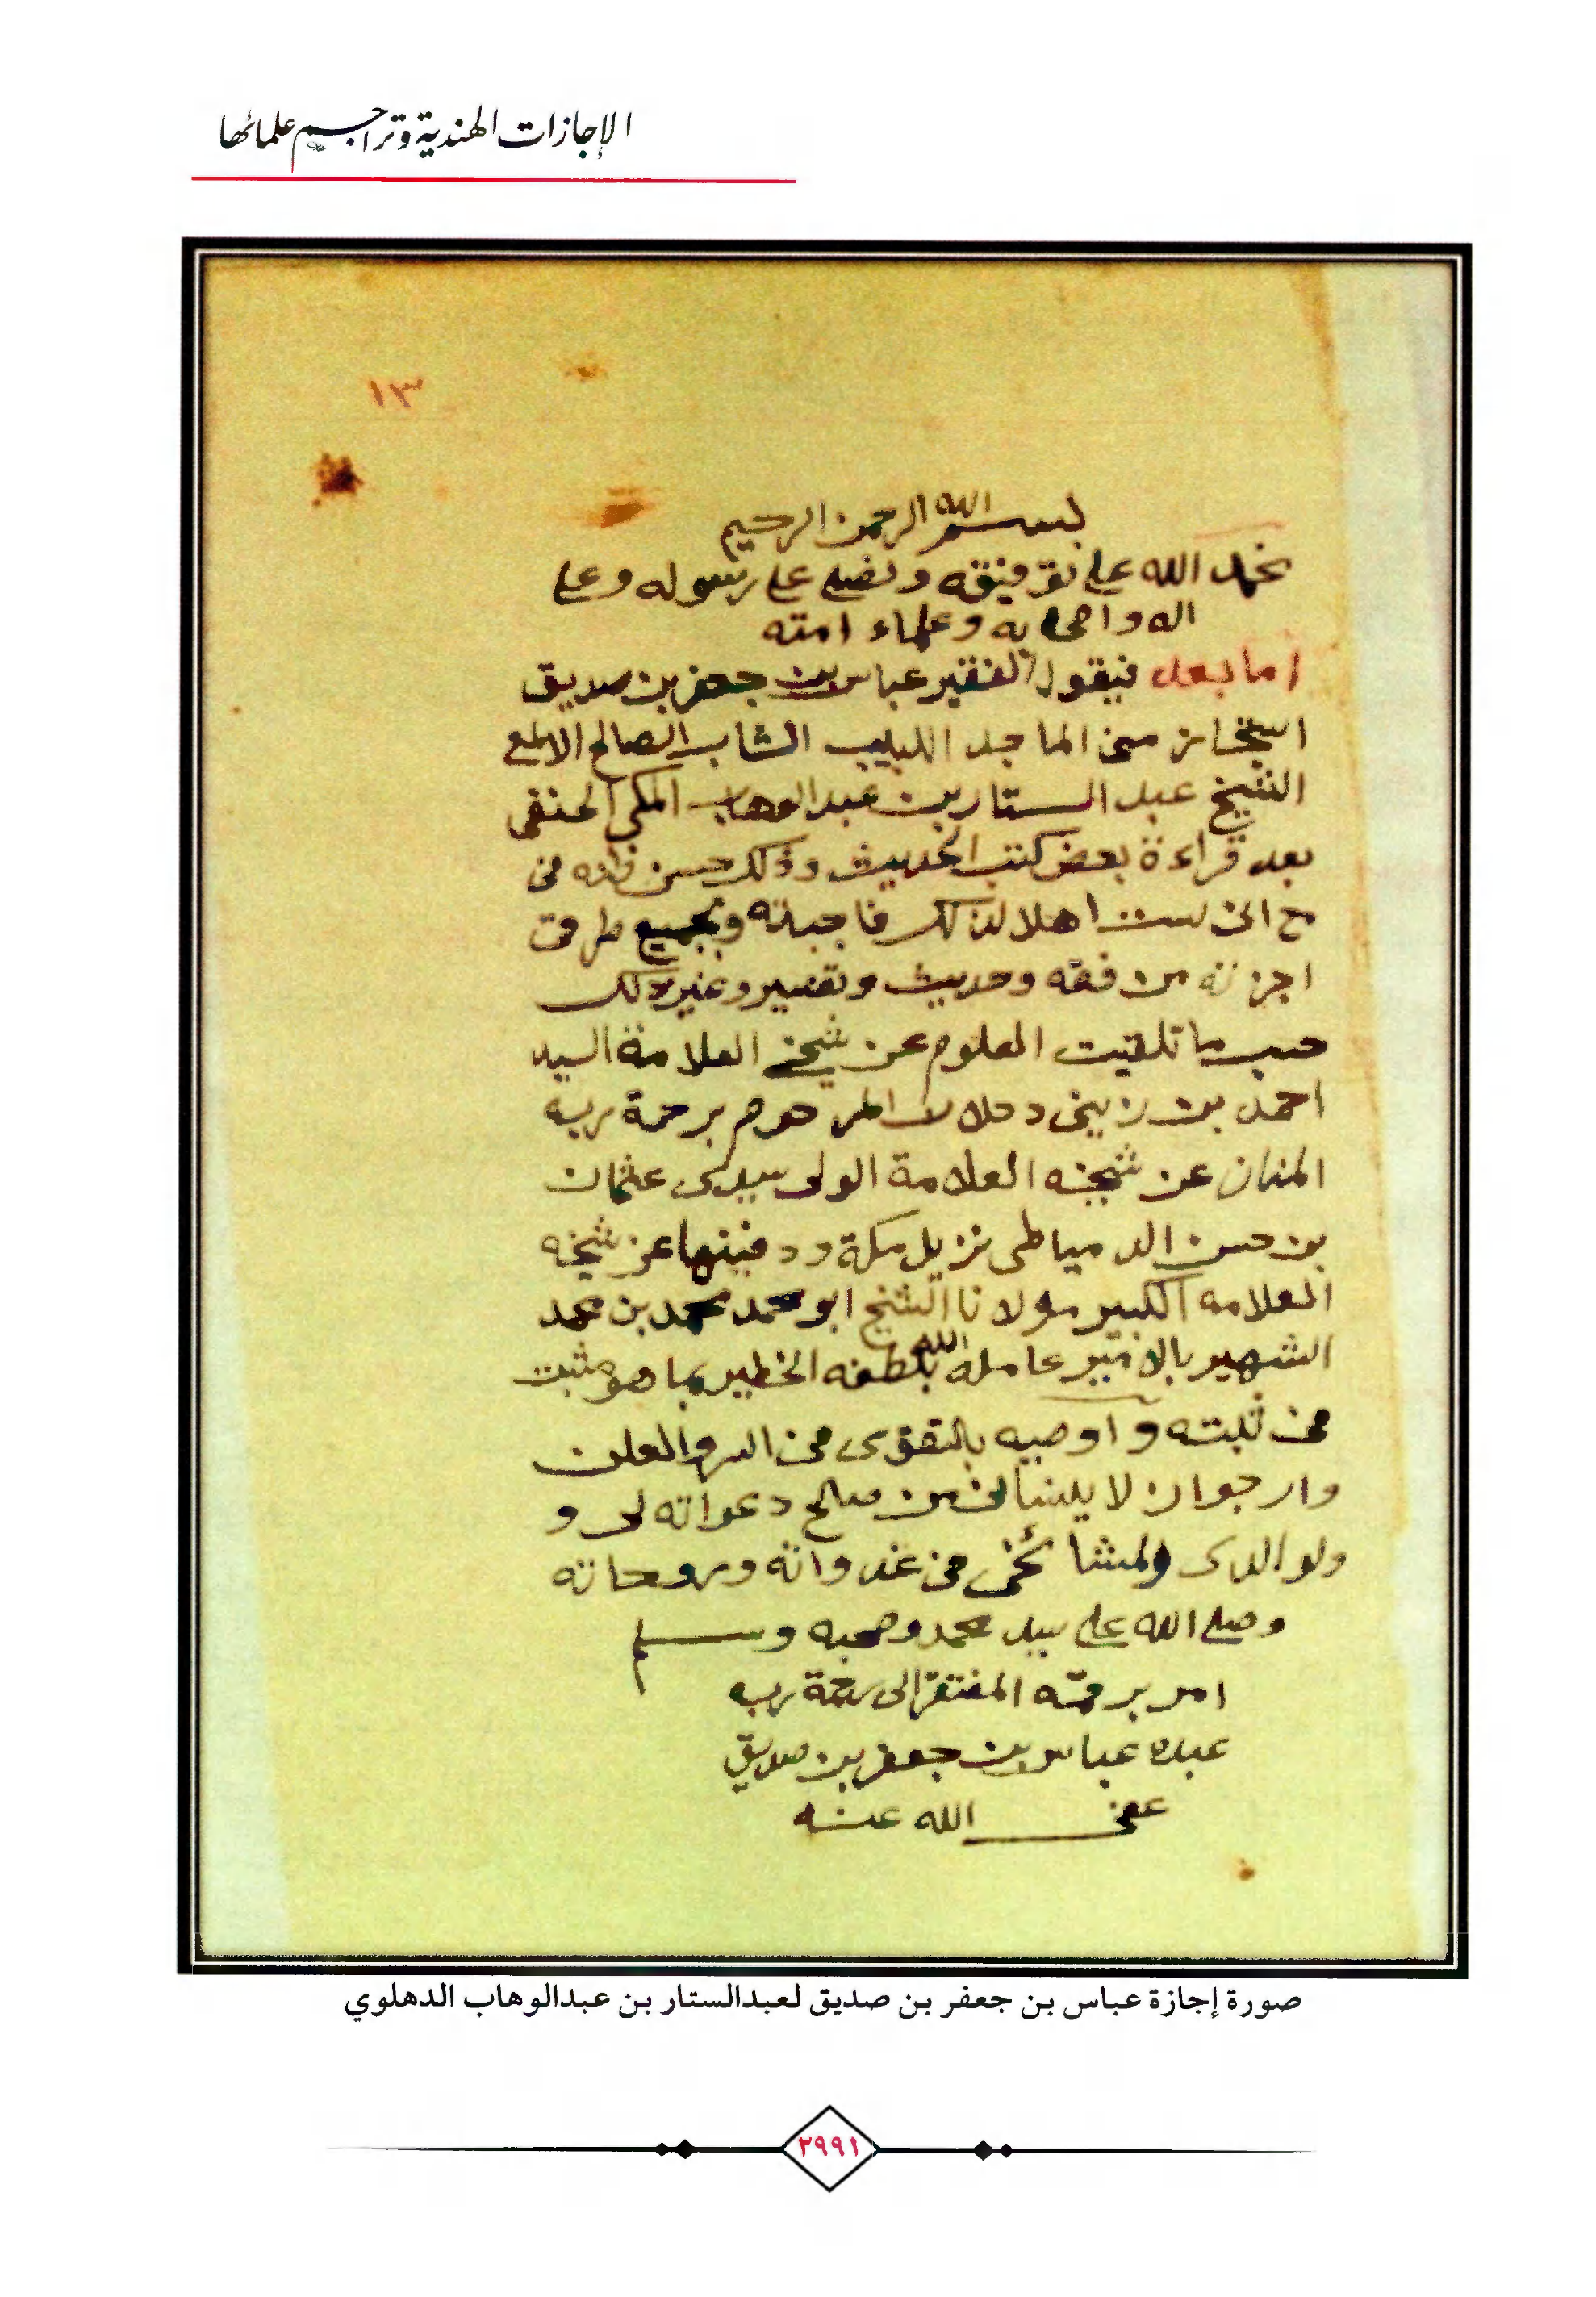 الإجازات الهندية وتراجم علمائها
١٣
بسم الله الرحمن الرحيم
نحمد الله على توفيقه ونصلي على رسوله وعلى
اله واصحابه وعلماء امته
اما بعد فيقول الفقير عباس بن جعفر بن صديق
استجاز مني الماجد اللبيب الشاب الصالح الالمع
الشيخ عبد الستار بن عبد الوهاب المكي الحنفي
بعد قراءة بعض كتب الحديث وذلك حسن ظنه في
مع اني لست اهلا لذلك فاجبته وبجميع طرقي
اجزته من فقه وحديث وتفسير وغير ذلك
حسب ما تلقيت العلوم عن شيخي العلامة السيد
احمد بن زيني دحلان المرحوم برحمة ربه
المنان عن شيخه العلامة الولي سيدى عثمان
بن حسن الدمياطي نزيل مكة ودفينها عن شيخه
العلامه الكبير مولانا الشيخ ابو محمد محمد بن محمد
الشهير بالامير عامله الله بلطفه الخطير بما هو مثبت
في ثبته وأوصيه بالتقوى في السر والعلن
وارجو ان لا ينساني من صالح دعواته لي و
ولوالدى ولمشائخي في غدواته وروحاته
وصلى الله على سيد محمد وصحبه وسلم
امر برقمه المفتقر الى رحمة ربه
عبده عباس بن جعفر بن صديق
عفى الله عنه
صورة إجازة عباس بن جعفر بن صديق لعبدالستار بن عبدالوهاب الدهلوي
٢٩٩١